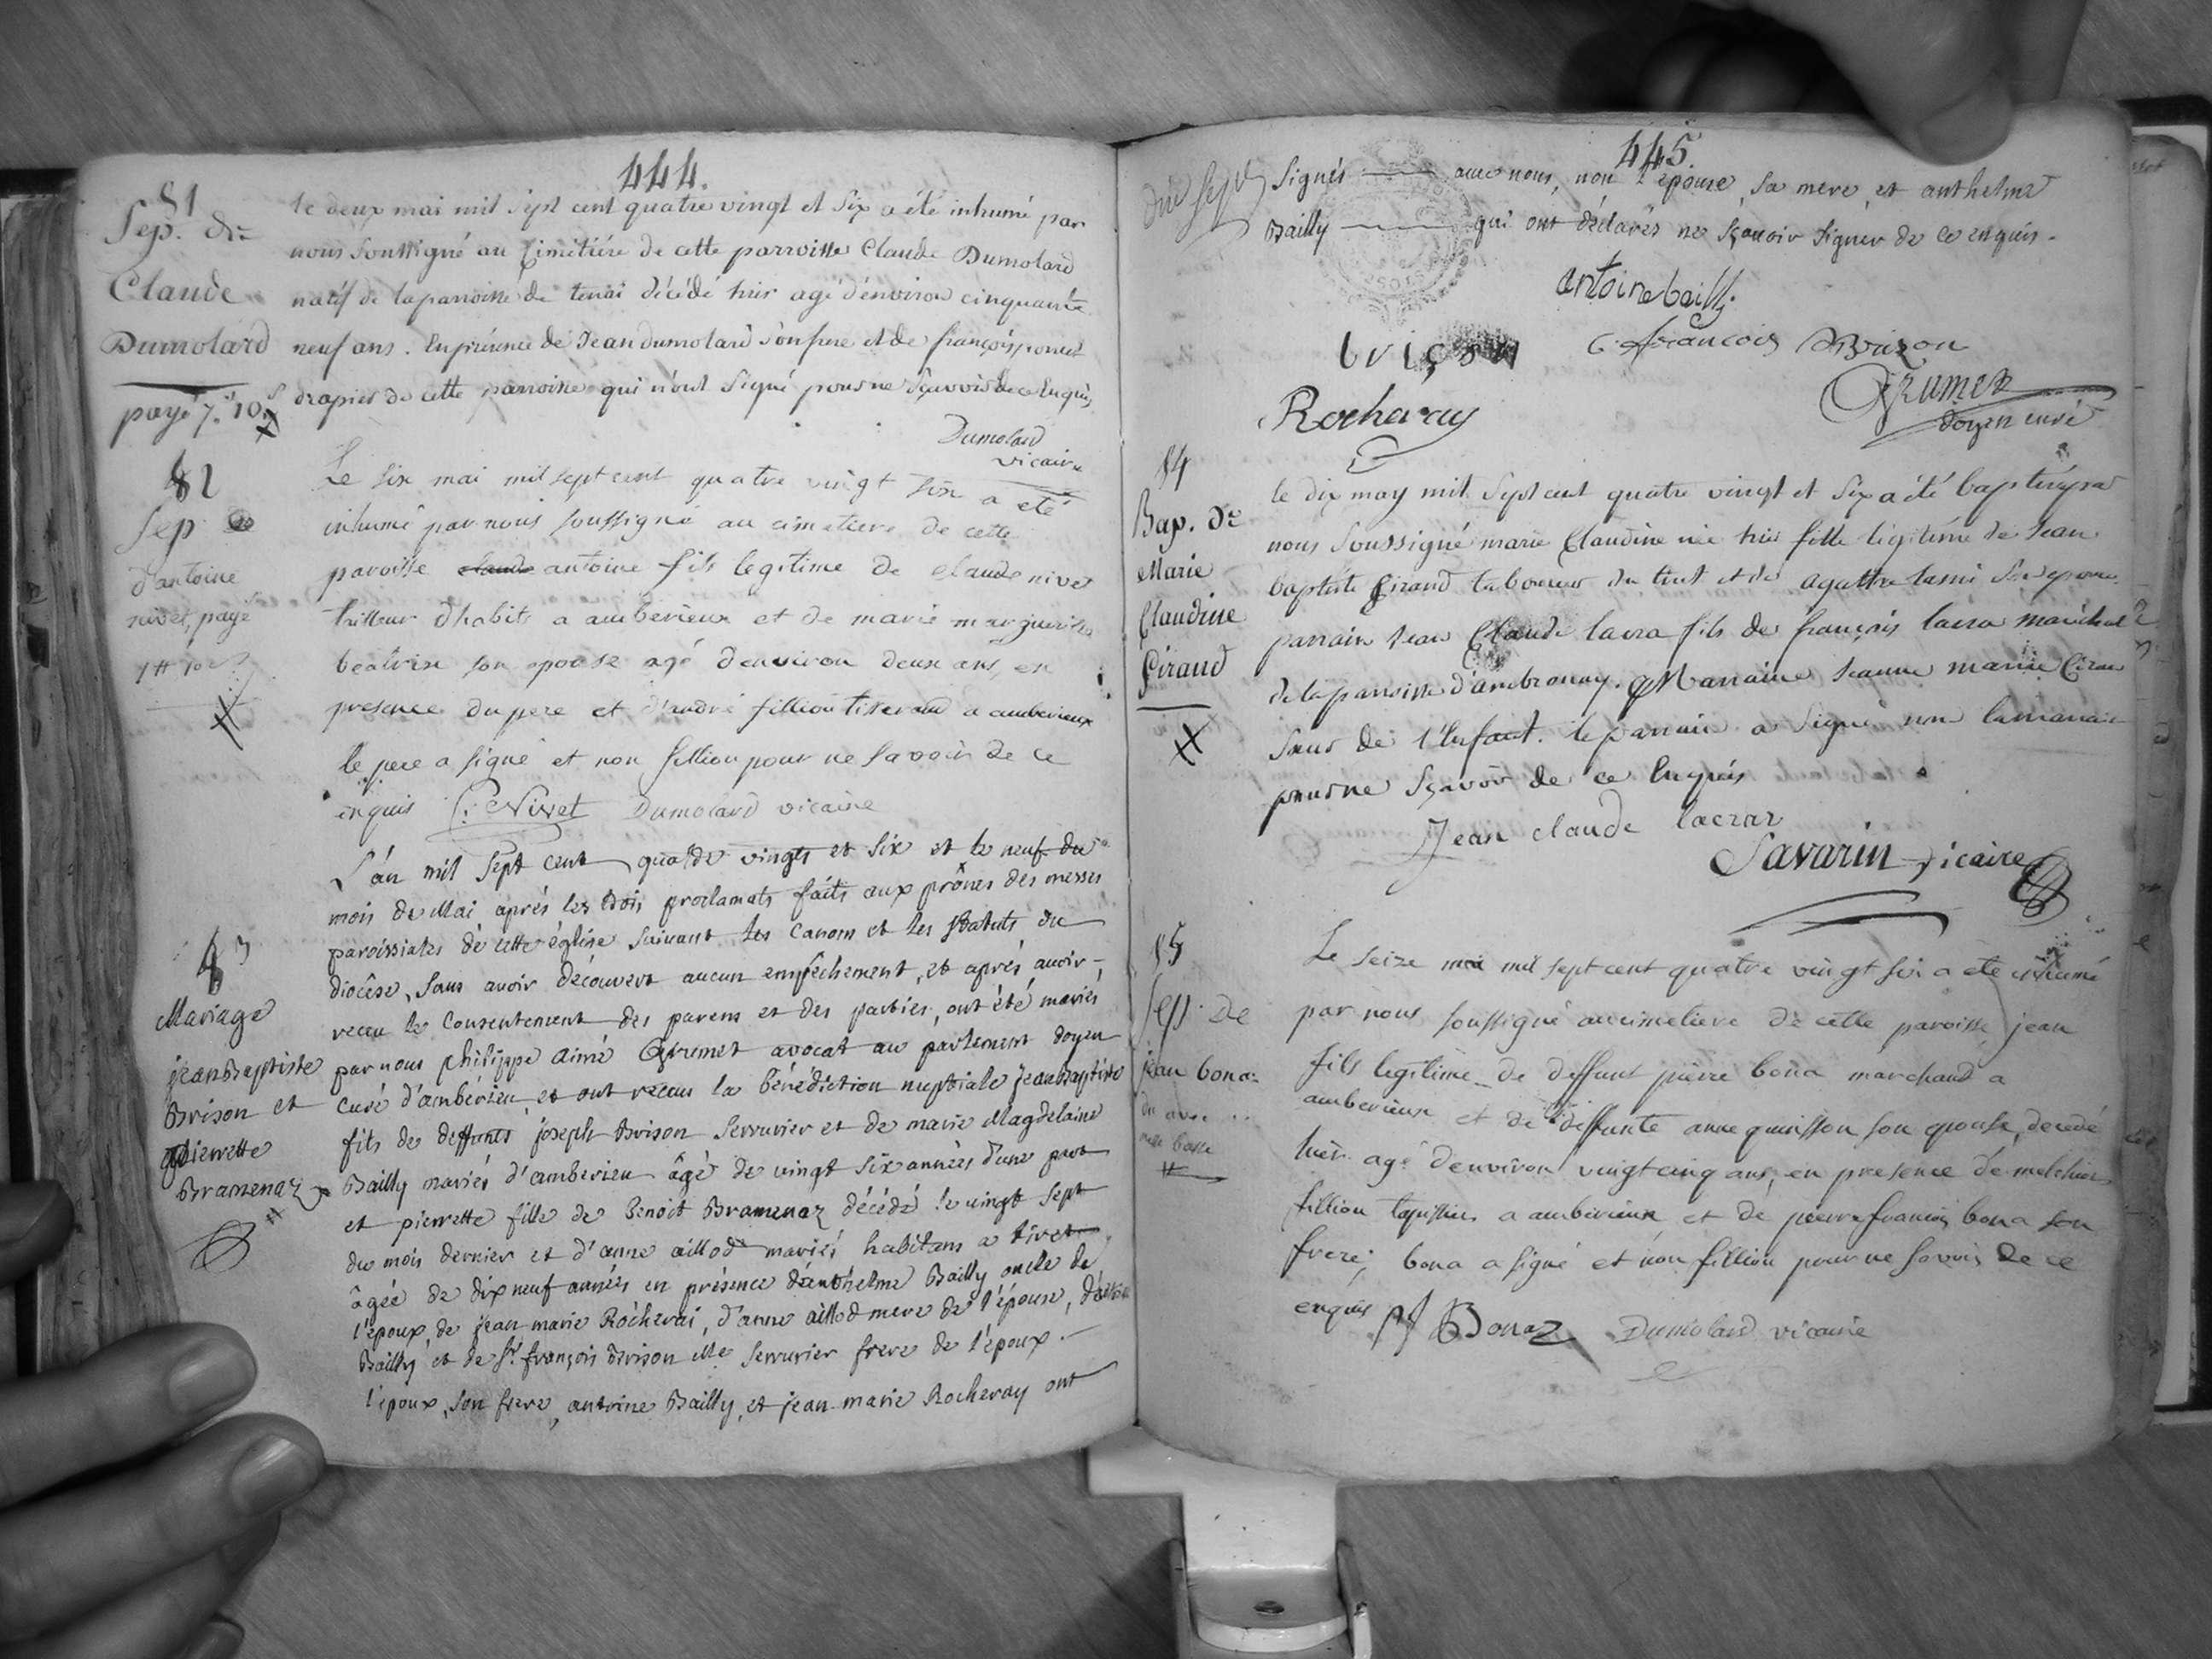 444.
81
Sep. de
Claude
Dumolard
payé 7.s 10.d
le deux mai mil sept cent quatre vingt et Six a été inhumé par
nous Soussigné au Cimetiére de cette parroisse Claude Dumolard
natif de la parroisse de tenai décédé hier agé d'environ cinquante
neuf ans. En présence de Jean dumolard son frere et de françois
drapier de cette parroisse qui n'ont Signé pour ne Sçavoir de ce Enquis
Dumolard
vicaire
82
Sep de
d'antoine
nivet, payé
Le six mai mil sept cent quatre vingt six a eté
inhumé par nous soussigné au cimetiere de cette
paroisse claude antoine fils legitime de claude nivet
tailleur d'habits a amberieux et de marie marguerite
beatrix son epouse agé d'environ deux ans, en
presence du pere et d'andré fillion tisserand a amberieux
le pere a signé et non fillion pour ne savoir de ce
enquis C: Nivet Dumolard vicaire
83
Mariage
jean Baptiste
Brison et
pierrette
Bramenaz
L'án mil Sept cent quatde vingts et six et le neuf du
mois de Mai aprés les trois proclamats faits aux prônes des messes
paroissiales dè cette église Suivant les Canons et les Statuts du
diocèse, Sans avoir découvert aucun empêchement, et aprés avoir
receu le Consentement des parens et des parties, ont été mariés
par nous philippe aimé Grumet avocat au parlement doyen
curé d'ambérieu, et ont receus la bénédiction nuptiale jean Baptiste
fils de deffunts joseph Brison Serrurier et de marie Magdelaine
Bailly mariés d'amberieu âgé de vingt six années d'une part
et pierrette fille de Benoit Bramenaz décédé le vingt Sept
du mois dernier et d'anne aillod mariés habitans a tiret
âgée de dix neuf années en présence d'anthelme Bailly oncle de
l'époux, de jean marie Rocherai, d'anne aillod mere de l'épouse, d'antoine
Bailly et de Sr. françois Brison Me Serrurier frere de l'époux.
l'époux, son frere, antoine Bailly, et jean marie Rocheray ont
445.
Signés avec nous, non l'épouse, Sa mere, et anthelme
Bailly qui ont déclarés ne Sçavoir Signer de ce enquis.
antoine bailli
brison
C. francois Brison
Rocheray
Grumet
doyen curé
84
Bap. de
Marie
Claudine
Giraud
le dix may mil Sept cent quatre vingt et Six a été baptisé par
nous Soussigné marie Claudine née hier fille légitime de Jean
baptiste Giraud laboureur du tiret et de agathe lami Son epouse.
parrain Jean Claude lacra fils de françois lacra maréchal
de la parroisse d'ambronay. Marraine Jeanne marie Girau
Sœur de l'Enfant. le parrain a Signé non la marraine
pour ne Sçavoir de ce Enquis
Jean claude lacraz
Savarin vicaire
85
Sep. De
jean bona
Le seize mai mil sept cent quatre vingt six a eté inhumé
par nous soussigné au cimetiere de cette paroisse jean
fils legitime de deffunt pierre bona marchand a
amberieux et de deffunte anne quinsson son epouse, decedé
hier agé d'environ vingt cinq ans, en presence de melchior
fillion tapissier a amberieux et de pierre francois bona son
frere; bona a signé et non fillion pour ne savoir de ce
enquis pf Bonaz Dumolard vicaire